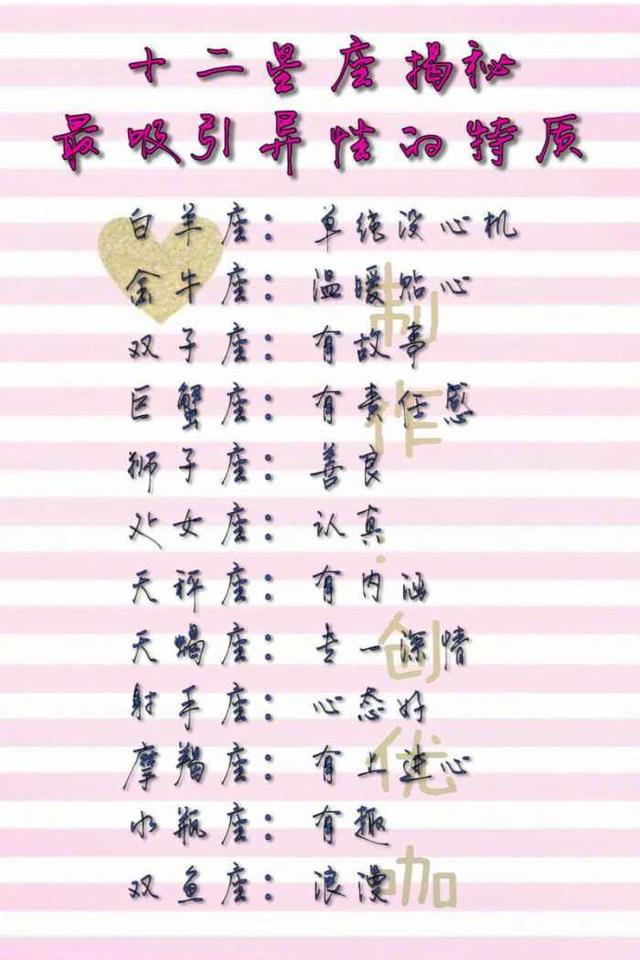 十二星座揭秘
最吸引异性的特质
白羊座：单纯没心机
金牛座：温暖贴心
双子座：有故事
巨蟹座：有责任感
狮子座：善良
处女座：认真
天秤座：有内涵
天蝎座：专一深情
射手座：心态好
摩羯座：有上进心
水瓶座：有趣
双鱼座：浪漫
制作：创优咖